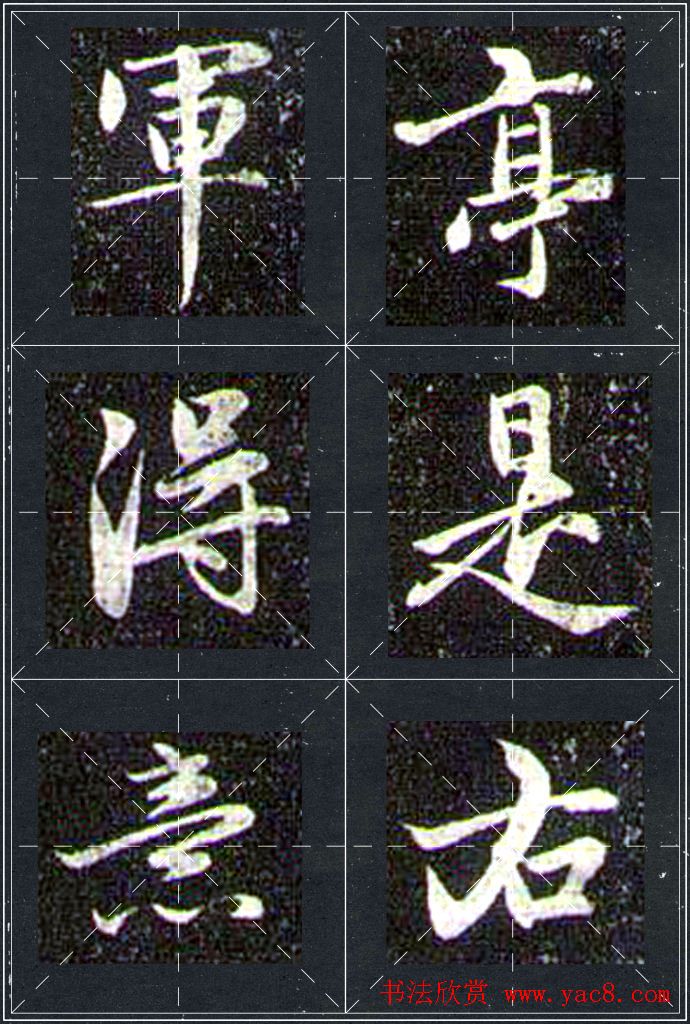 亭是右
軍得意
书法欣赏 www.yac8.com